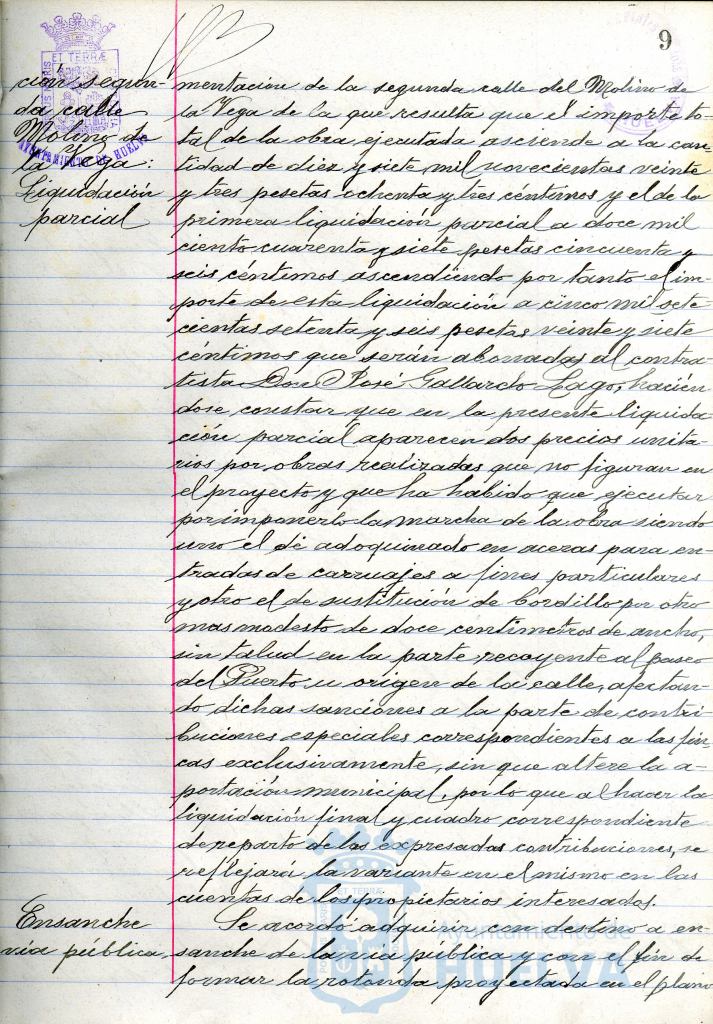 9
ción segun-
da calle
Molino de
la Vega:
Liquidación
parcial
mentación de la segunda calle del Molino de
la Vega de la que resulta que el importe to-
tal de la obra ejecutada asciende a la can-
tidad de diez y siete mil novecientas veinte
y tres pesetas ochenta y tres céntimos y el de la
primera liquidación parcial a doce mil
ciento cuarenta y siete pesetas cincuenta y
seis céntimos ascendiendo por tanto el im-
porte de esta liquidación a cinco mil sete-
cientas setenta y seis pesetas veinte y siete
céntimos que serán abonadas al contra-
tista Don José Gallardo Lago, hacién-
dose constar que en la presente liquida-
ción parcial aparecen dos precios unita-
rios por obras realizadas que no figuran en
el proyecto y que ha habido que ejecutar
por imponerlo la marcha de la obra siendo
uno el de adoquinado en aceras para en-
tradas de carruajes a fines particulares
y otro el de sustitución de bordillo por otro
mas modesto de doce centimetros de ancho,
sin talud en la parte recayente al paseo
del Puerto u origen de la calle, afectan-
do dichas sanciones a la parte de contri-
buciones especiales correspondientes a las fin-
cas exclusivamente, sin que altere la a-
portación municipal, por lo que al hacer la
liquidación final y cuadro correspondiente
de reparto de las expresadas contribuciones, se
reflejará la variante en el mismo en las
cuentas de los propietarios interesados.
Ensanche
vía pública
Se acordó adquirir con destino a en-
sanche de la via pública y con el fin de
formar la rotonda proyectada en el plano
AYUNTAMIENTO DE HUELVA
ET TERRÆ
Ayuntamiento de
HUELVA